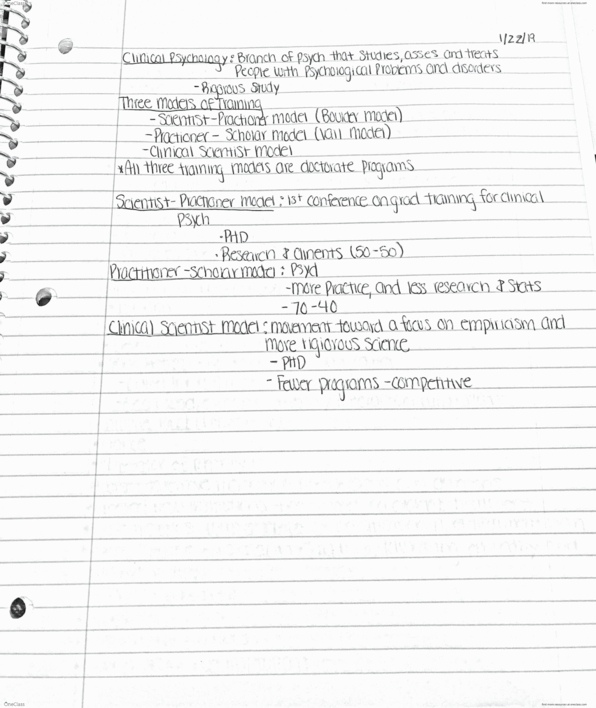 1/22/19
Clinical Psychology: Branch of psych that studies, asses and treats
People with Psychological Problems and disorders
- Rigorous Study
Three models of Training
- Scientist-Practioner model (Boulder model)
- Practioner - Scholar model (Vail model)
- Clinical Scientist model
*All three training models are doctorate programs
Scientist-Practioner model: 1st conference on grad training for clinical
Psych
• PHD
• Research & Clinents (50-50)
Practitioner-scholar model: Psyd
- more Practice, and less research & Stats
- 70-40
Clinical Scientist model: movement toward a focus on empiricism and
more rigiorous science
- PHD
- Fewer programs - competitive
OneClass